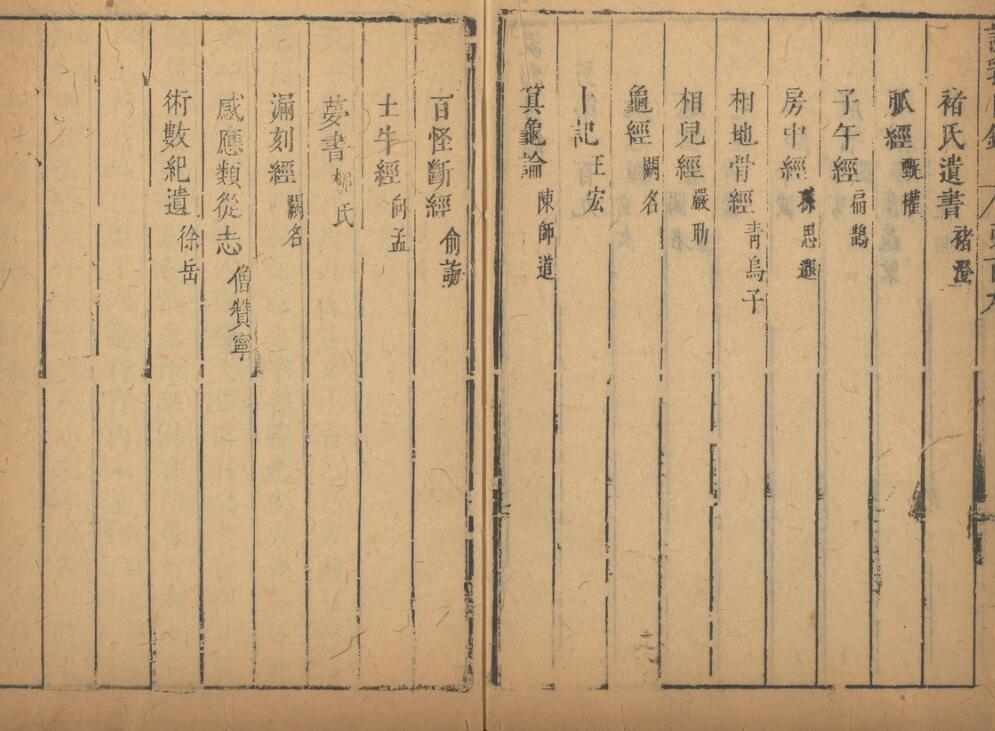 褚氏遺書 褚澄
脈經 甄權
子午經 扁鵲
房中經 孫思邈
相地骨經 青烏子
相兒經 嚴助
龜經 闕名
卜記 王宏
箕龜論 陳師道
百怪斷經 俞誨
土牛經 向孟
夢書 柳氏
漏刻經 闕名
感應類從志 僧贊寧
術數紀遺 徐岳